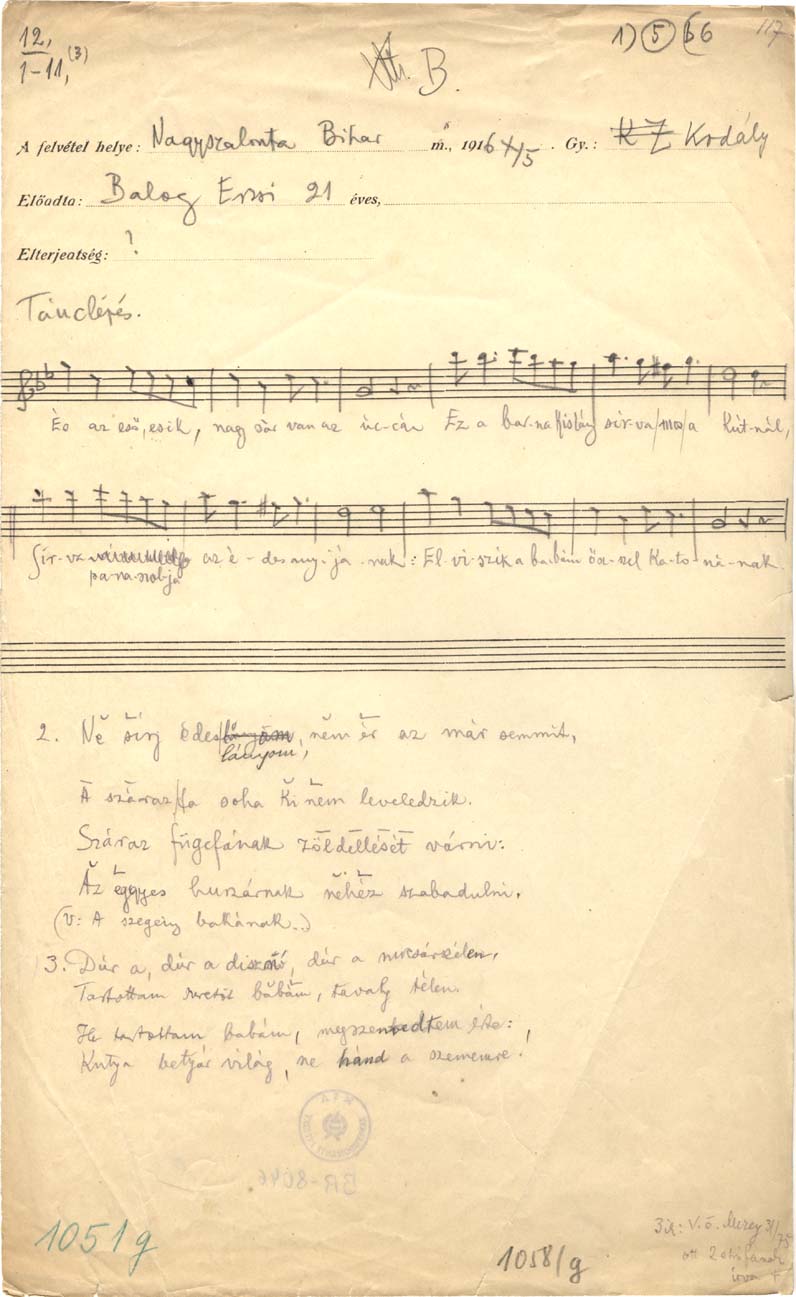 12,
1-11, (3)
B.
1) 5 b6
117
A felvétel helye: Nagyszalonta Bihar m., 1916 X/5. Gy.: K Z Kodály
Előadta: Balog Erzsi 21 éves,
Elterjedtség: ?
Tánclépés.
És az eső, esik, nagy sár van az úc-cán Ez a bar-na kislány sír-va mos a kút-nál,
Sír-va az é-des any-já-nak: El-vi-szik a babám ősz-szel ka-to-ná-nak.
pa-na-szol-ja
2. Ne sírj édes lányom, nem ér az már semmit,
A száraz fa soha ki nem leveledzik.
Száraz fügefának zöldellését várni:
Az eggyes huszárnak nehéz szabadulni.
(V: A szegény bakának..)
3. Dúr a, dúr a disznó, dúr a mocsárszélen,
Tartottam szeretőt babám, tavaly télen.
Ha tartottam babám, megszenvedtem érte:,
Kutya betyár világ, ne hánd a szememre.
BR-8046
1051g
1058/g
V.ö. 31/75
ott